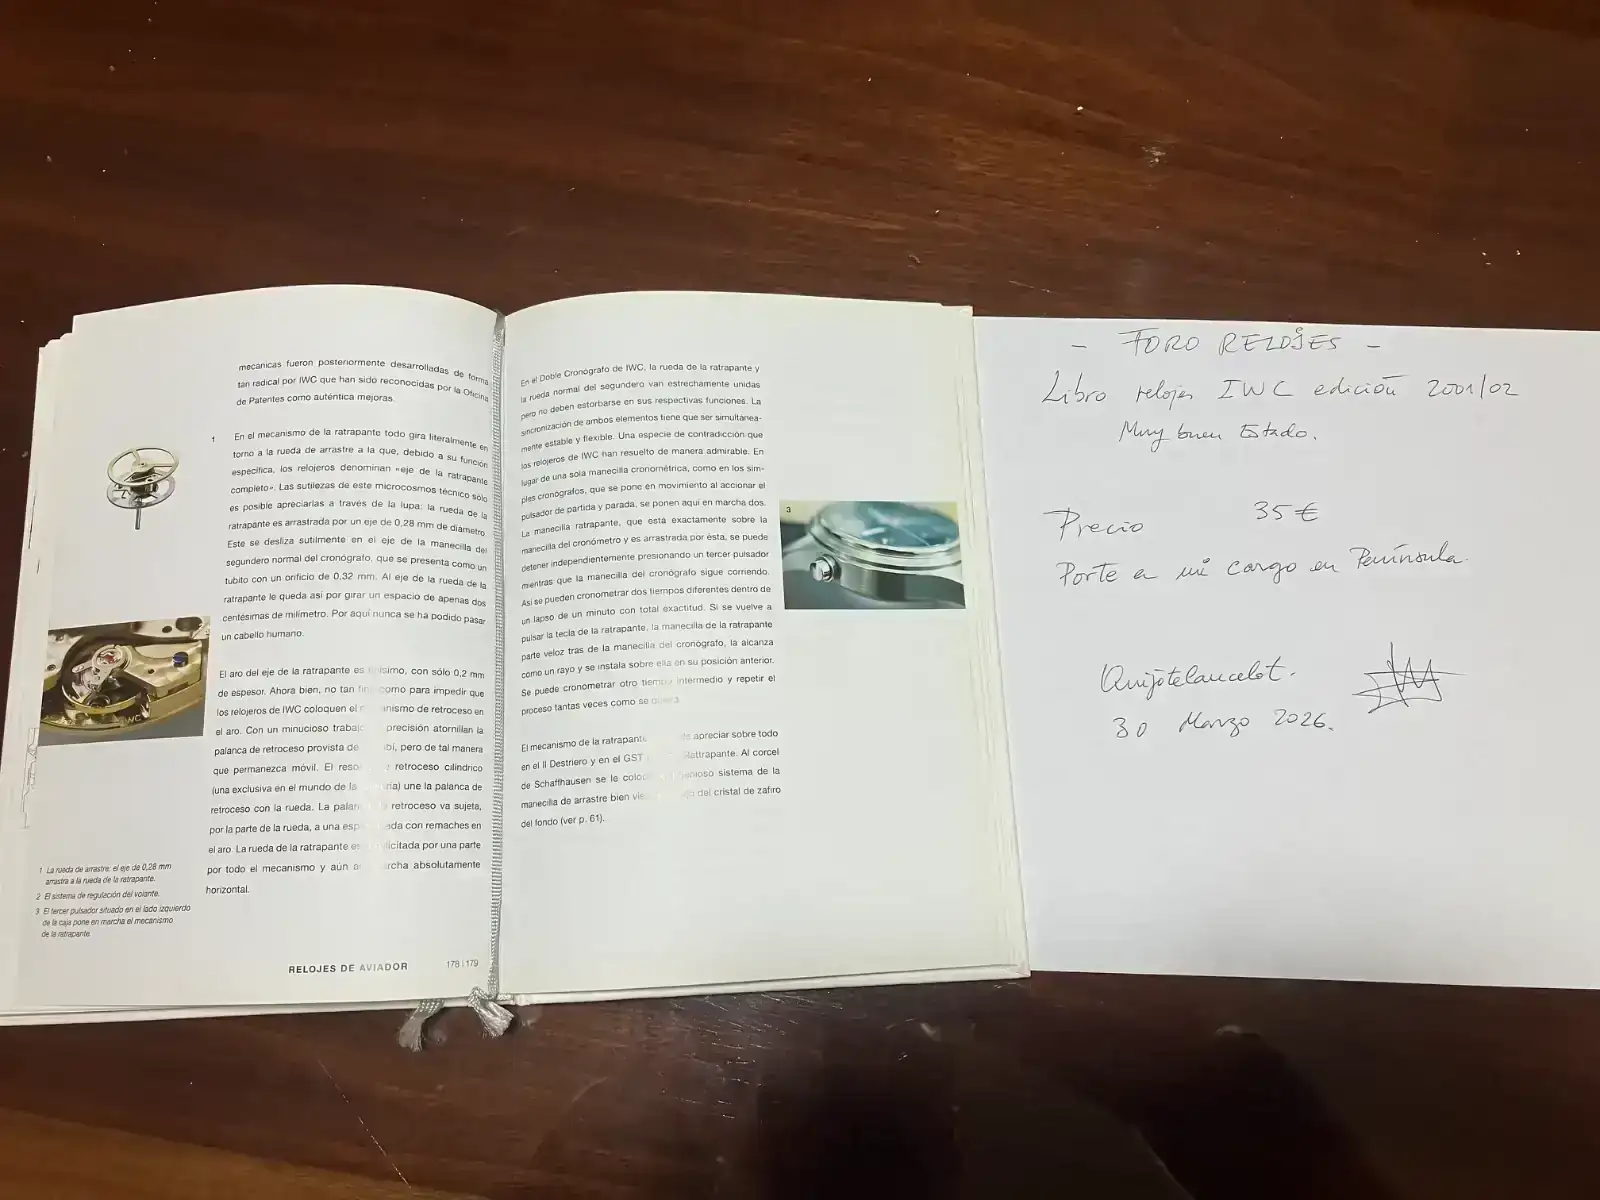 mecánicas fueron posteriormente desarrolladas de forma
tan radical por IWC que han sido reconocidas por la Oficina
de Patentes como auténtica mejoras.
1 En el mecanismo de la ratrapante todo gira literalmente en
torno a la rueda de arrastre a la que, debido a su función
específica, los relojeros denominan «eje de la ratrapante
completo». Las sutilezas de este microcosmos técnico sólo
es posible apreciarlas a través de la lupa: la rueda de la
ratrapante es arrastrada por un eje de 0,28 mm de diámetro.
Este se desliza sutilmente en el eje de la manecilla del
segundero normal del cronógrafo, que se presenta como un
tubito con un orificio de 0,32 mm. Al eje de la rueda de la
ratrapante le queda así por girar un espacio de apenas dos
centésimas de milímetro. Por aquí nunca se ha podido pasar
un cabello humano.
El aro del eje de la ratrapante es finísimo, con sólo 0,2 mm
de espesor. Ahora bien, no tan fino como para impedir que
los relojeros de IWC coloquen el mecanismo de retroceso en
el aro. Con un minucioso trabajo precisión atornillan la
palanca de retroceso provista de pero de tal manera
que permanezca móvil. El retroceso cilíndrico
(una exclusiva en el mundo de la une la palanca de
retroceso con la rueda. La palanca retroceso va sujeta,
por la parte de la rueda, a una con remaches en
el aro. La rueda de la ratrapante por una parte
por todo el mecanismo y aún absolutamente
horizontal.
1 La rueda de arrastre: el eje de 0,28 mm
arrastra a la rueda de la ratrapante.
2 El sistema de regulación del volante.
3 El tercer pulsador situado en el lado izquierdo
de la caja pone en marcha el mecanismo
de la ratrapante.
RELOJES DE AVIADOR 178 | 179
IWC
En el Doble Cronógrafo de IWC, la rueda de la ratrapante y
la rueda normal del segundero van estrechamente unidas
pero no deben estorbarse en sus respectivas funciones. La
sincronización de ambos elementos tiene que ser simultánea-
mente estable y flexible. Una especie de contradicción que
los relojeros de IWC han resuelto de manera admirable. En
lugar de una sola manecilla cronométrica, como en los sim-
ples cronógrafos, que se pone en movimiento al accionar el
pulsador de partida y parada, se ponen aquí en marcha dos.
La manecilla ratrapante, que está exactamente sobre la
manecilla del cronómetro y es arrastrada por ésta, se puede
detener independientemente presionando un tercer pulsador
mientras que la manecilla del cronógrafo sigue corriendo.
Así se pueden cronometrar dos tiempos diferentes dentro de
un lapso de un minuto con total exactitud. Si se vuelve a
pulsar la tecla de la ratrapante, la manecilla de la ratrapante
parte veloz tras de la manecilla del cronógrafo, la alcanza
como un rayo y se instala sobre ella en su posición anterior.
Se puede cronometrar otro tiempo intermedio y repetir el
proceso tantas veces como se quiera.
El mecanismo de la ratrapante apreciar sobre todo
en el Il Destriero y en el GST Rattrapante. Al corcel
de Schaffhausen se le sistema de la
manecilla de arrastre bien del cristal de zafiro
del fondo (ver p. 61).
3
- FORO RELOJES -
Libro relojes IWC edición 2001/02
Muy buen Estado.
Precio 35€
Porte a mi cargo en Península.
Quijotelancelot.
30 Marzo 2026.